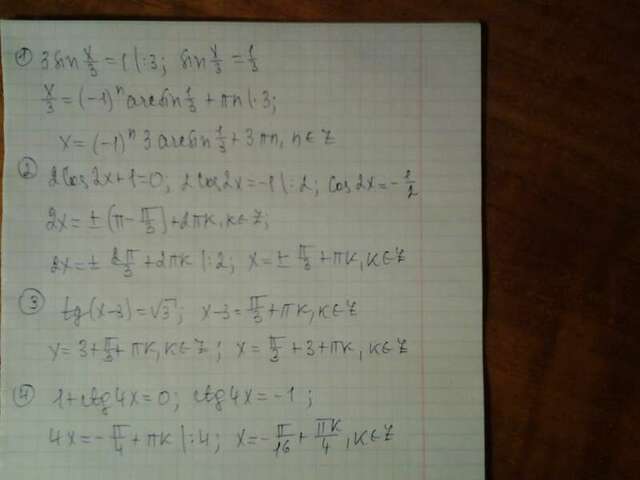 ① 3 sin x/3 = 1 |:3; sin x/3 = 1/3
x/3 = (-1)^n arcsin 1/3 + πn |·3;
x = (-1)^n 3 arcsin 1/3 + 3πn, n∈Z
② 2cos2x+1=0; 2cos2x=-1 |:2; cos2x=-1/2
2x = ± (π - π/3) + 2πк, к∈Z;
2x = ± 2π/3 + 2πк |:2; x = ± π/3 + πк, к∈Z
③ tg(x-3)=√3; x-3 = π/3 + πк, к∈Z
x = 3 + π/3 + πк, к∈Z; x = π/3 + 3 + πк, к∈Z
④ 1+ctg4x=0; ctg4x=-1;
4x = -π/4 + πк |:4; x = -π/16 + πк/4, к∈Z